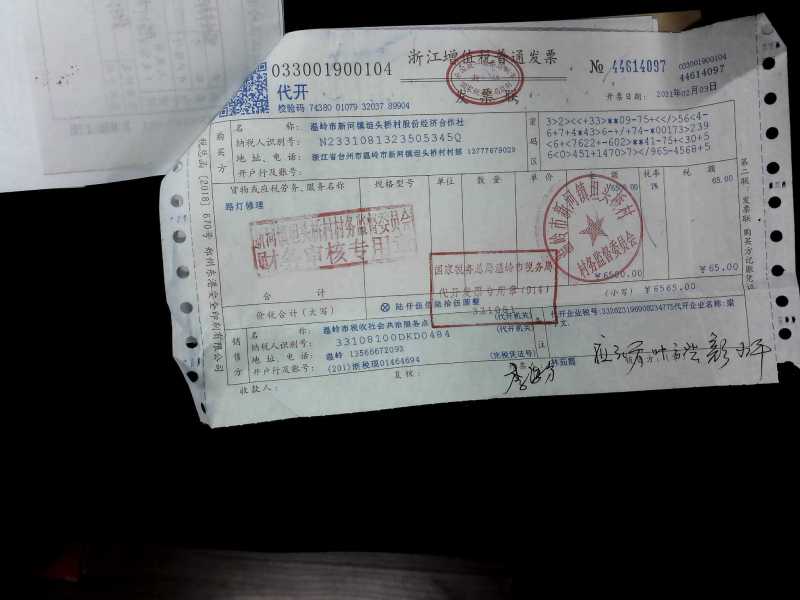 033001900104
浙江增值税普通发票
№ 44614097
033001900104
44614097
代开
发票联
校验码 74380 01079 32037 89904
开票日期: 2021年02月09日
购买方
名 称: 温岭市新河镇坦头桥村股份经济合作社
纳税人识别号: N2331081323505345Q
地 址、电 话: 浙江省台州市温岭市新河镇坦头桥村村部 13777679029
开户行及账号:
密码区
3>2><<+33>**09-75+<</>56<4-
6+7+4*43>6-+/+74-*00173>239
<6+<7622+-602>**41-75+<30+5
6<0>451+1470>7></965-4568+5
货物或应税劳务、服务名称
规格型号
单位
数 量
单 价
金 额
税率
税 额
路灯修理
6500.00
1%
65.00
新河镇坦头桥村村务监督委员会
财务审核专用章
温岭市新河镇坦头桥村
村务监督委员会
国家税务总局温岭市税务局
代开发票专用章(914)
合 计
¥6500.00
¥65.00
价税合计(大写)
⊗ 陆仟伍佰陆拾伍圆整
(小写) ¥6565.00
销售方
名 称: 温岭市税收社会共治服务点
(代开机关)
纳税人识别号: 33108100DKD0484
(代开机关)
地 址、电 话: 温岭 13566672093
开户行及账号: (201)浙税现01464694
(完税凭证号)
备注
代开企业税号:332623196908234775代开企业名称:梁
文
收款人:
复核:
林茹霞
税总函〔2018〕670号 郑州东港安全印刷有限公司
第二联 发票联 购买方记账凭证